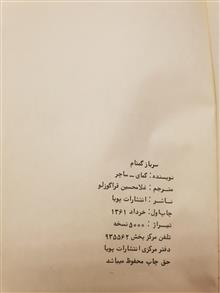 سرباز گمنام
نویسنده: گمای ـ ساچر
مترجم: غلامحسین قراگوزلو
ناشر: انتشارات پویا
چاپ اول: خرداد ۱۳۶۱
تیراژ: ۵۰۰۰ نسخه
تلفن مرکز پخش ۹۳۵۵۶۲
دفتر مرکزی انتشارات پویا
حق چاپ محفوظ میباشد